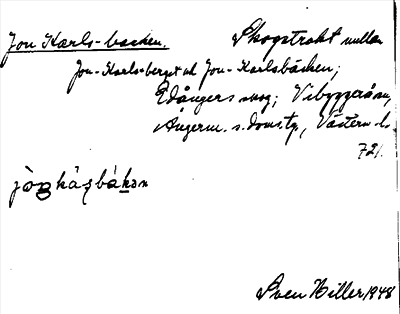 Jon Karls-backen. Skogstrakt mellan
Jon-Karls-berget o Jon-Karlsbäcken;
Edångers skog; Vibyggerå sn,
Ångerm. s. doms. tg., Västern. l.
721.
Sven Hiller 1948